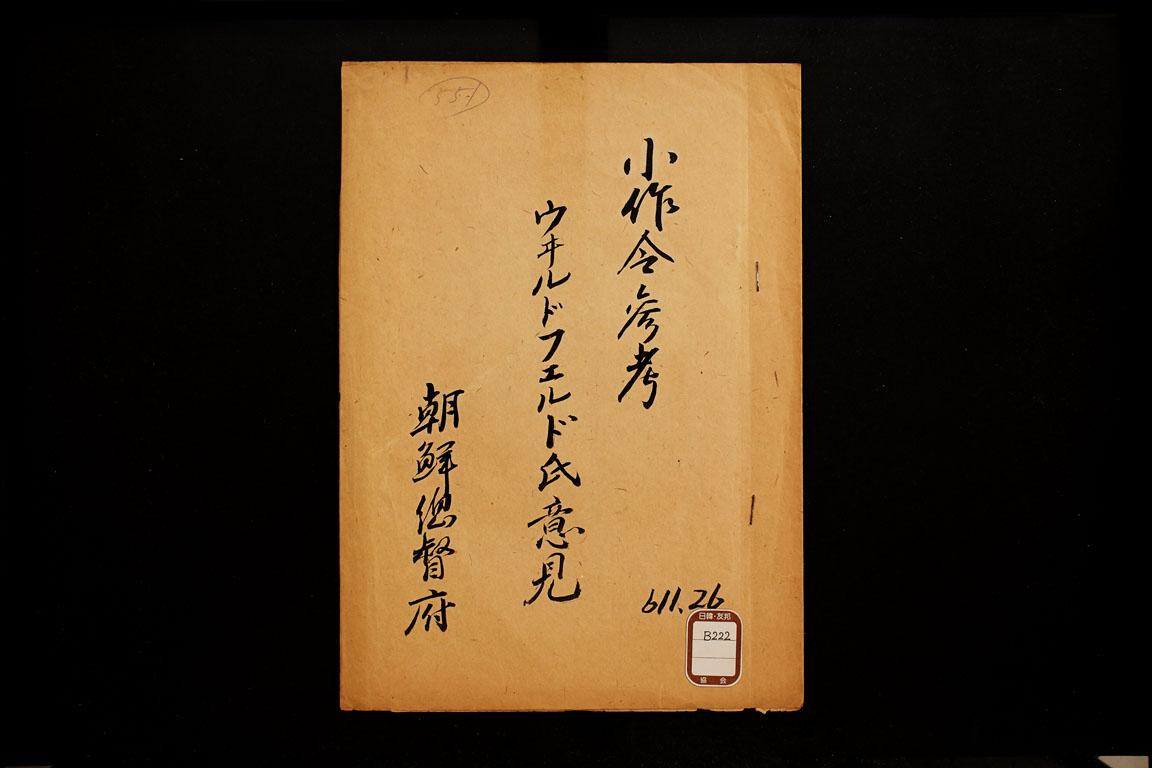 55-1
小作令参考
ウヰルドフエルド氏意見
朝鮮総督府
611.26
日韓・友邦
B222
協会